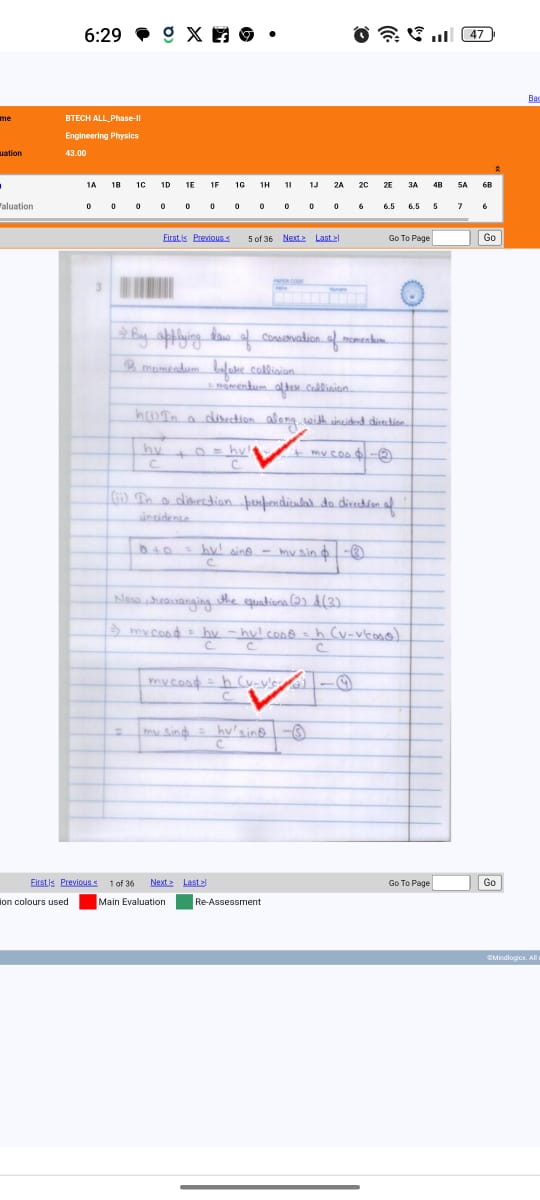 6:29
47
Bac
me
BTECH ALL_Phase-II
Engineering Physics
uation
43.00
1A 1B 1C 1D 1E 1F 1G 1H 1I 1J 2A 2C 2E 3A 4B 5A 6B
aluation 0 0 0 0 0 0 0 0 0 0 0 6 6.5 6.5 5 7 6
First |< Previous < 5 of 36 Next > Last >| Go To Page Go
3
PAPER CODE
⇒ By applying law of conservation of momentum
momentum before collision
= momentum after collision
(i) In a direction along with incident direction
hν/c + 0 = hν' + mv cos φ -②
(ii) In a direction perpendicular to direction of
incidence
0 + 0 = hν'/c sinθ - mv sin φ -③
Now, rearranging the equations (2) & (3)
⇒ mv cos φ = hν/c - hν'/c cosθ = h/c (ν-ν'cosθ)
mv cosφ = h/c (ν-ν' θ) -④
= mv sinφ = hν'sinθ/c -⑤
First |< Previous < 1 of 36 Next > Last >| Go To Page Go
ion colours used Main Evaluation Re-Assessment
©Mindlogicx. All